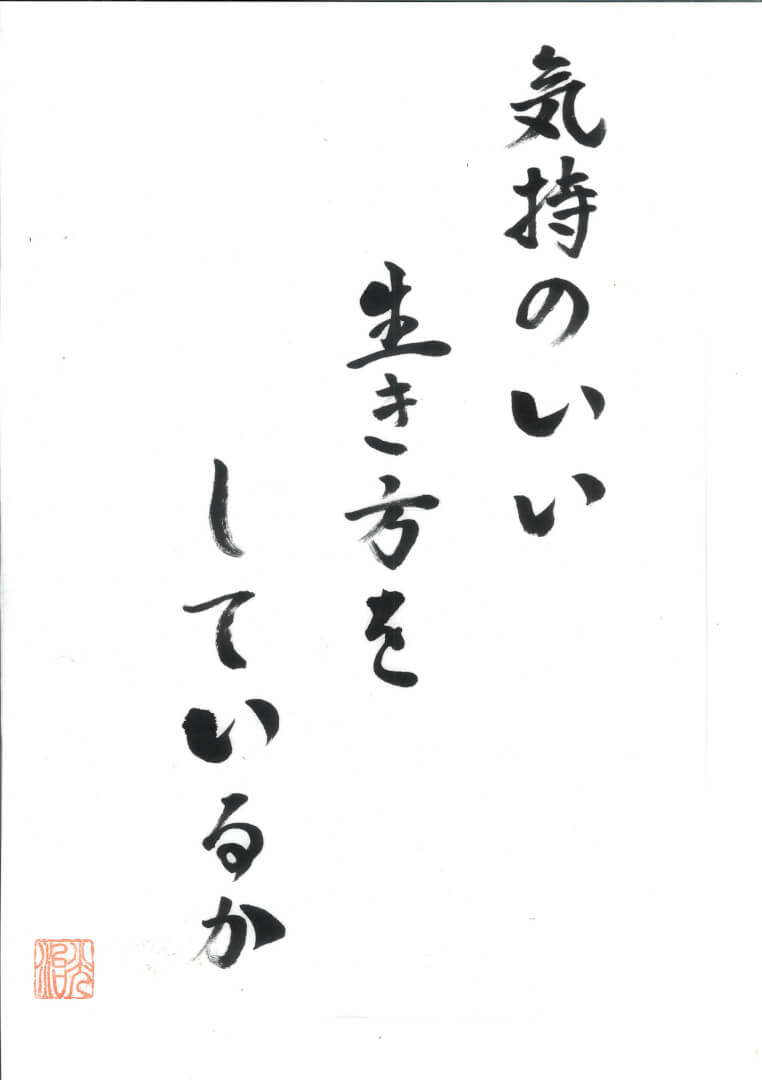 気持のいい
生き方を
しているか